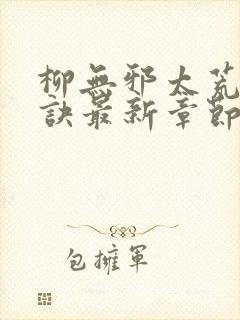 柳無邪太荒
訣最新章節
包擁軍